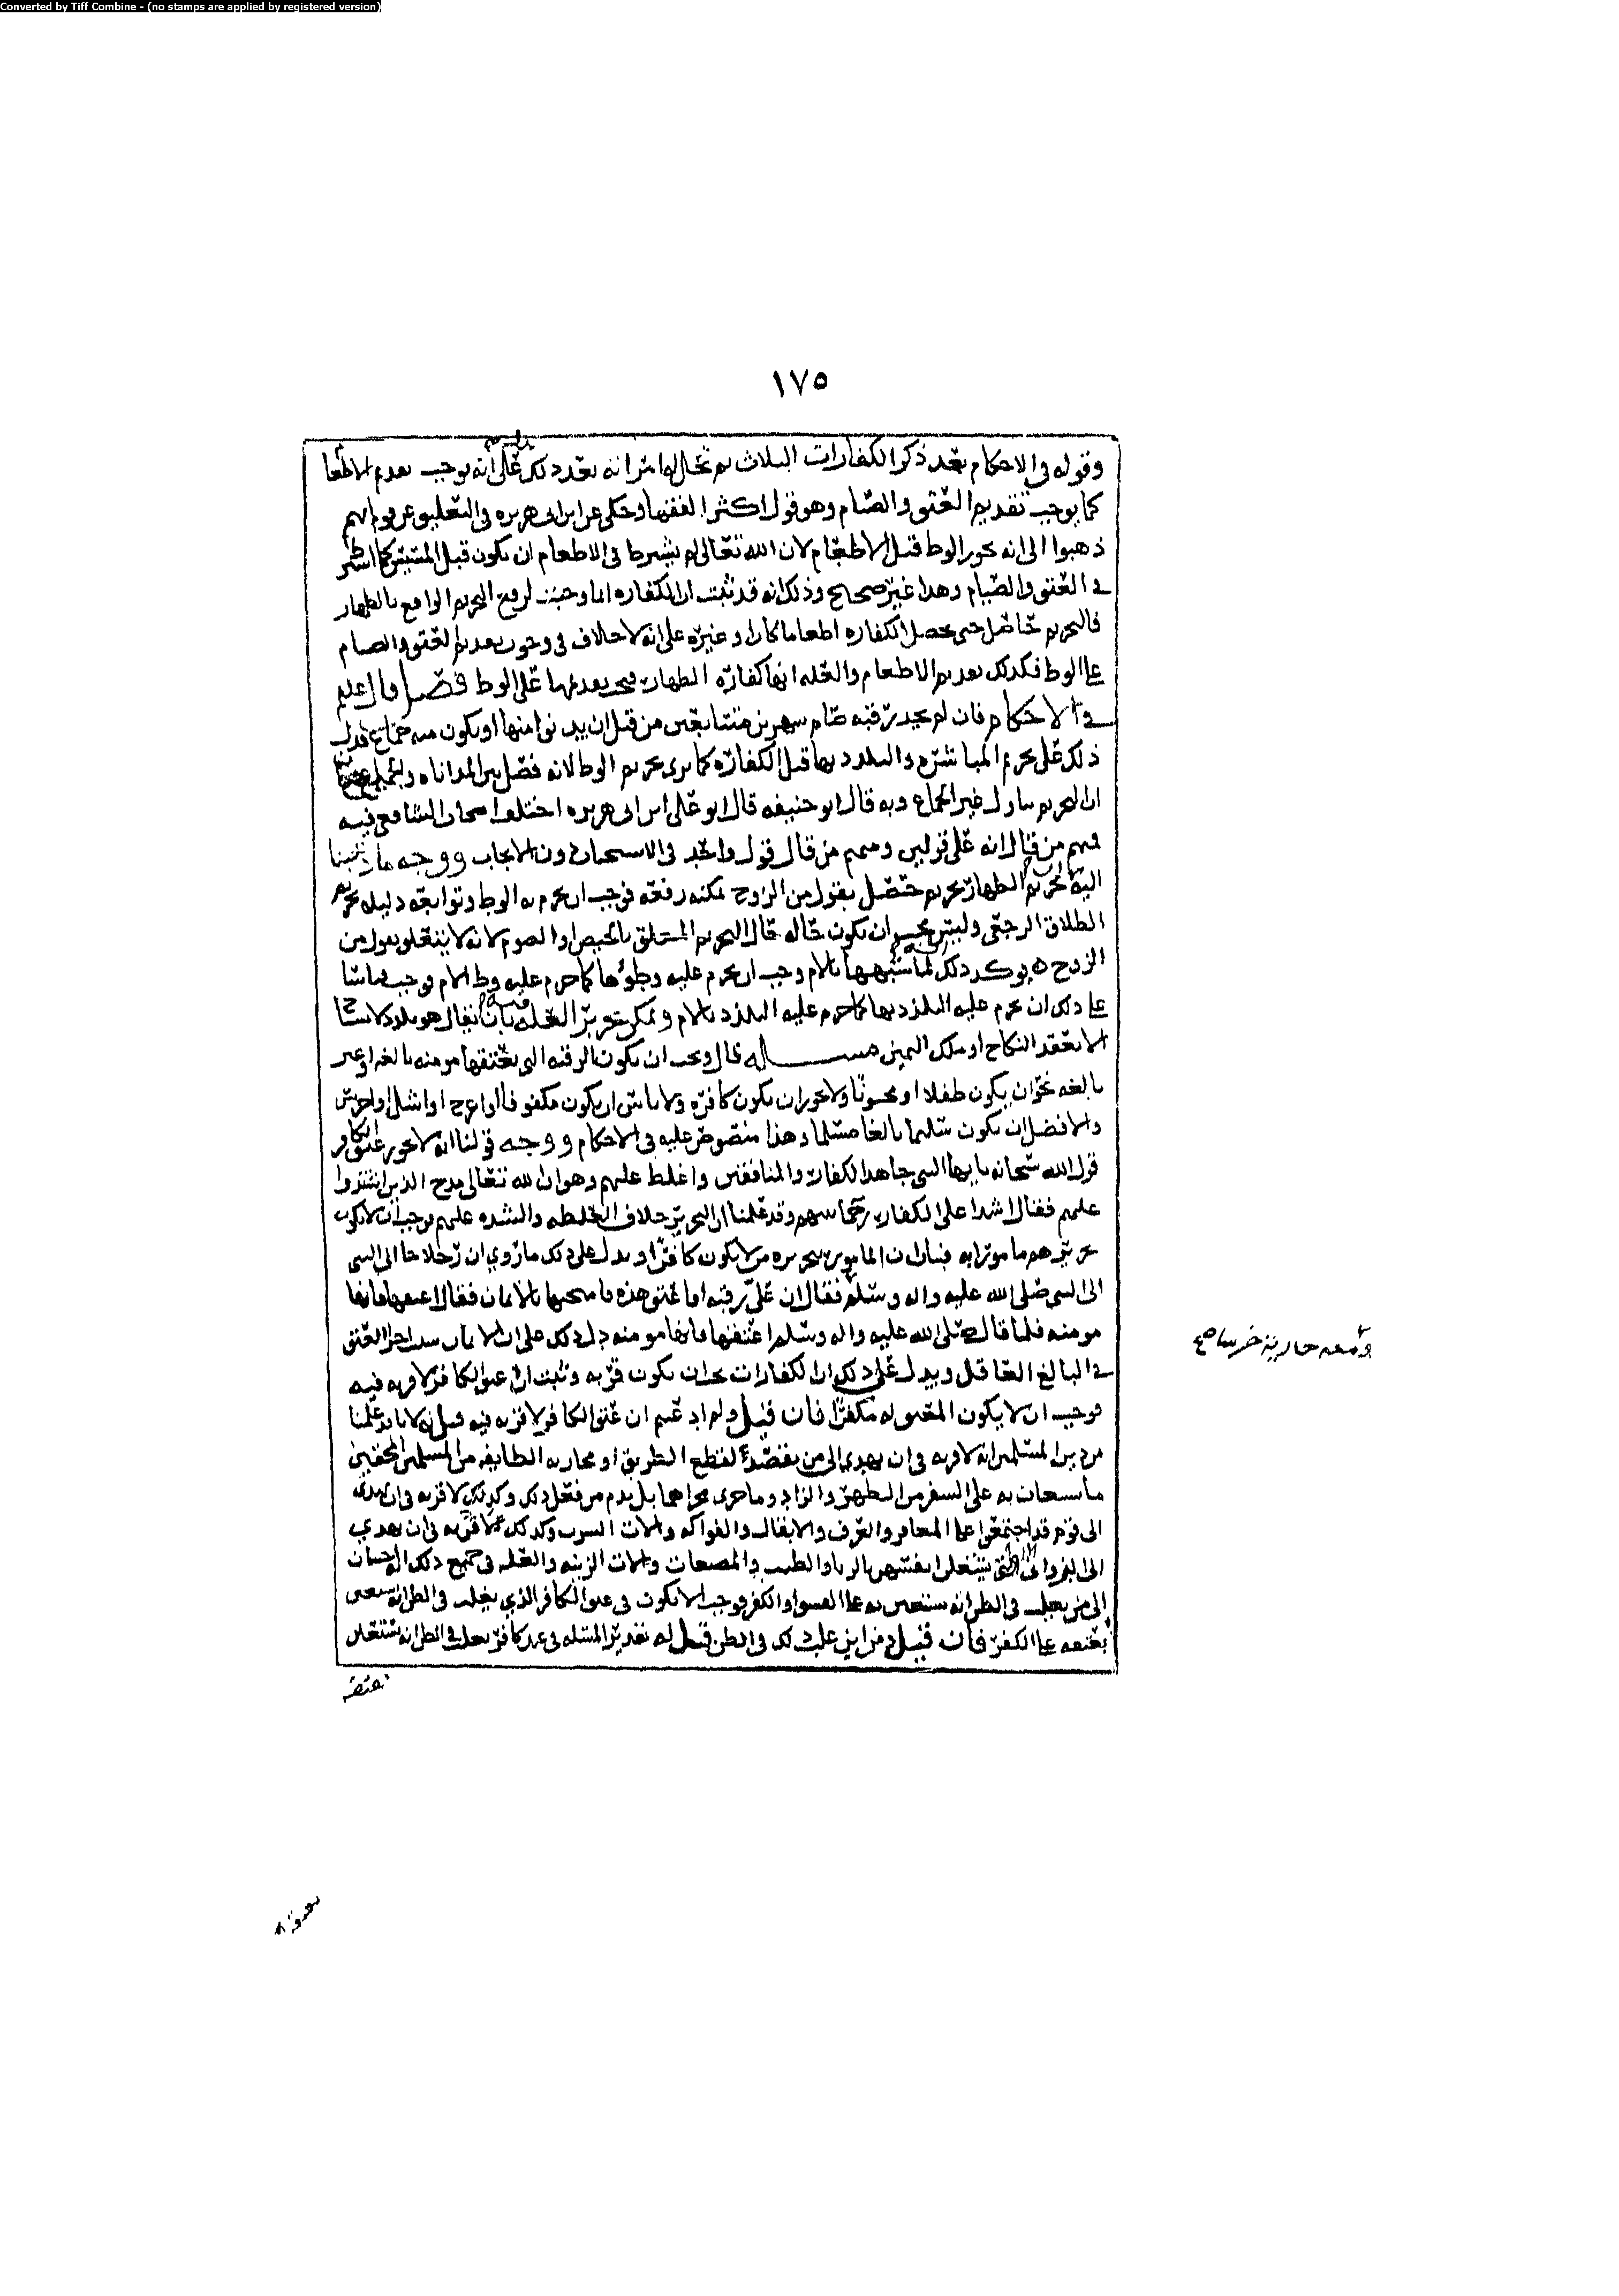 Converted by Tiff Combine - (no stamps are applied by registered version)
١٧٥
وقوله في الاحكام بعد ذكر الكفارات الثلاث ثم تحل له امراته بعد ذلك على انه يوجب تقديم الاطعام
كما يوجب تقديم العتق والصيام وهو قول اكثر الفقها وحكى عن ابن ابي هريره في التعليق عن قوم انهم
ذهبوا الى انه يجوز الوطا قبل الاطعام لان الله تعالى لم يشرط في الاطعام ان يكون قبل المسيس كما اشترط
في العتق والصيام وهذا غير صحيح وذلك انه قد ثبت ان الكفاره انما وجبت لرفع التحريم الواقع بالظهار
فالتحريم حاصل حتى تحصل الكفاره اطعاما كان او غيره على انه لا خلاف في وجوب تقديم العتق والصيام
على الوطا فكذلك تقديم الاطعام والعله انها كفارة الظهار فيجب تقديمها على الوطا فصل قال عليلم
في الاحكام فان لم يجد رقبه صام شهرين متتابعين من قبل ان يدنوا منها او يكون منه جماع فدل
ذلك على تحريم المباشره والتلذذ بها قبل الكفاره كما يرى تحريم الوطا لانه فصل بين المداناه والجماع
ان التحريم يتناول غير الجماع وبه قال ابو حنيفه قال ابو على ابن ابي هريره اختلف اصحاب الشافعي فيه
فمنهم من قال انه على قولين ومنهم من قال قول واحد في الاستحباب دون الايجاب ووجه ما ذهبنا
اليه ان تحريم الظهار تحريم حصل بقول من الزوج يمكنه رفعه فوجب ان يحرم به الوطا وتوابعه دليله تحريم
الطلاق الرجعي وليس يجب ان يكون حاله حال التحريم المتعلق بالحيض او الصوم لانه لا يتعلق بقول من
الزوج ويوكد ذلك لما شبهها بالام وجب ان يحرم عليه وطوها كما حرم عليه وطا الام فوجب قياسا
على ذلك ان يحرم عليه التلذذ بها كما حرم عليه التلذذ بالام ويمكن تحرير العله فيه بان يقال هو تلذذ لا يستباح
الا بعقد النكاح او ملك اليمين مسـاله قال ويجب ان يكون الرقبه التي يعتقها مومنه بالغه او غير
بالغه نحو ان يكون طفلا او مجنونا ولا يجوز ان يكون كافره ولا باس ان يكون مكفوفا او اعرج او اشل او اخرس
والافضل ان يكون سليما بالغا مسلما وهذا منصوص عليه في الاحكام ووجه قولنا انه لا يجوز عتق الكافر
قول الله سبحانه يايها النبي جاهد الكفار والمنافقين واغلظ عليهم وهو ان لله تعالى مدح الذين اشتدوا
عليهم فقال اشدا على الكفار رحما بينهم وقد علمنا ان التحرير خلاف الغلظه والشده عليهم فوجب ان لا يكون
تحريرهم مامورا به فبان ان المامور بتحريره من لا يكون كافرا ويدل على ذلك ما روي ان رجلا جا الى النبي
الى النبي صلى الله عليه واله وسلم فقال ان علي رقبه افاعتق هذه فامتحنها بالايمان فقال اعتقها فانها
مومنه فلما قال صلى الله عليه واله وسلم اعتقها فانها مومنه دل ذلك على ان الايمان سبب اجزا العتق
في البالغ العاقل ويدل على ذلك ان الكفارات يجب ان تكون قربه وثبت ان عتق الكافر لا قربه فيه
فوجب ان لا يكون المعتق له مكفرا فان قيل ولم ادعيتم ان عتق الكافر لا قربه فيه قيل له لانا قد علمنا
من دين المسلمين انه لا قربه في ان يهدى الى من يقصد لقطع الطريق او محاربه الطايفه من المسلمين المحقين
ما يستعان به على السفر من الظهر والزاد وما جرى مجراهما بل يذم من فعل ذلك وكذلك لا قربه في ان يهدى
الى قوم قد اجتمعوا على المعازف والعزف والانقال والفواكه والات الشرب وكذلك لا قربه في ان يهدي
الى من يغلب في الظن انه يستعين به على الفسق او الكفر فوجب الا يكون في عتق الكافر الذي يغلب في الظن انه يستعين
بعتقه على الكفر فان قيل ومن اين غلب ذلك في الظن قيل له تقدير المسئله في عبد كافر يغلب في الظن انه يستعين
بعتقه